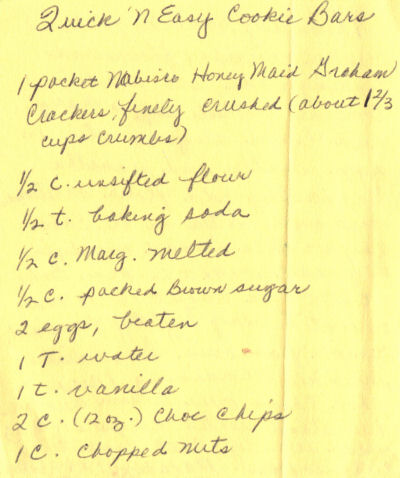 Quick 'N Easy Cookie Bars
1 packet Nabisco Honey Maid Graham
Crackers, finely crushed (about 1 2/3
cups crumbs)
1/2 c. unsifted flour
1/2 t. baking soda
1/2 c. Marg. melted
1/2 c. packed Brown sugar
2 eggs, beaten
1 T. water
1 t. vanilla
2 c. (12 oz.) Choc Chips
1 c. chopped nuts